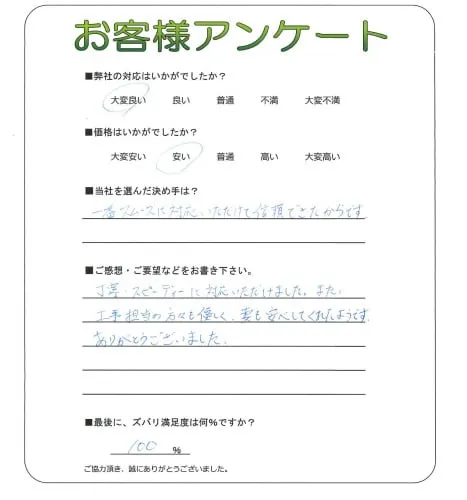 お客様アンケート
■弊社の対応はいかがでしたか?
大変良い 良い 普通 不満 大変不満
■価格はいかがでしたか?
大変安い 安い 普通 高い 大変高い
■当社を選んだ決め手は?
一番スムーズに対応いただけて信頼できたからです
■ご感想・ご要望などをお書き下さい。
丁寧・スピーディーに対応いただけました。また
工事担当の方々も優しく、妻も安心してくれたようです。
ありがとうございました。
■最後に、ズバリ満足度は何%ですか?
100 %
ご協力頂き、誠にありがとうございました。